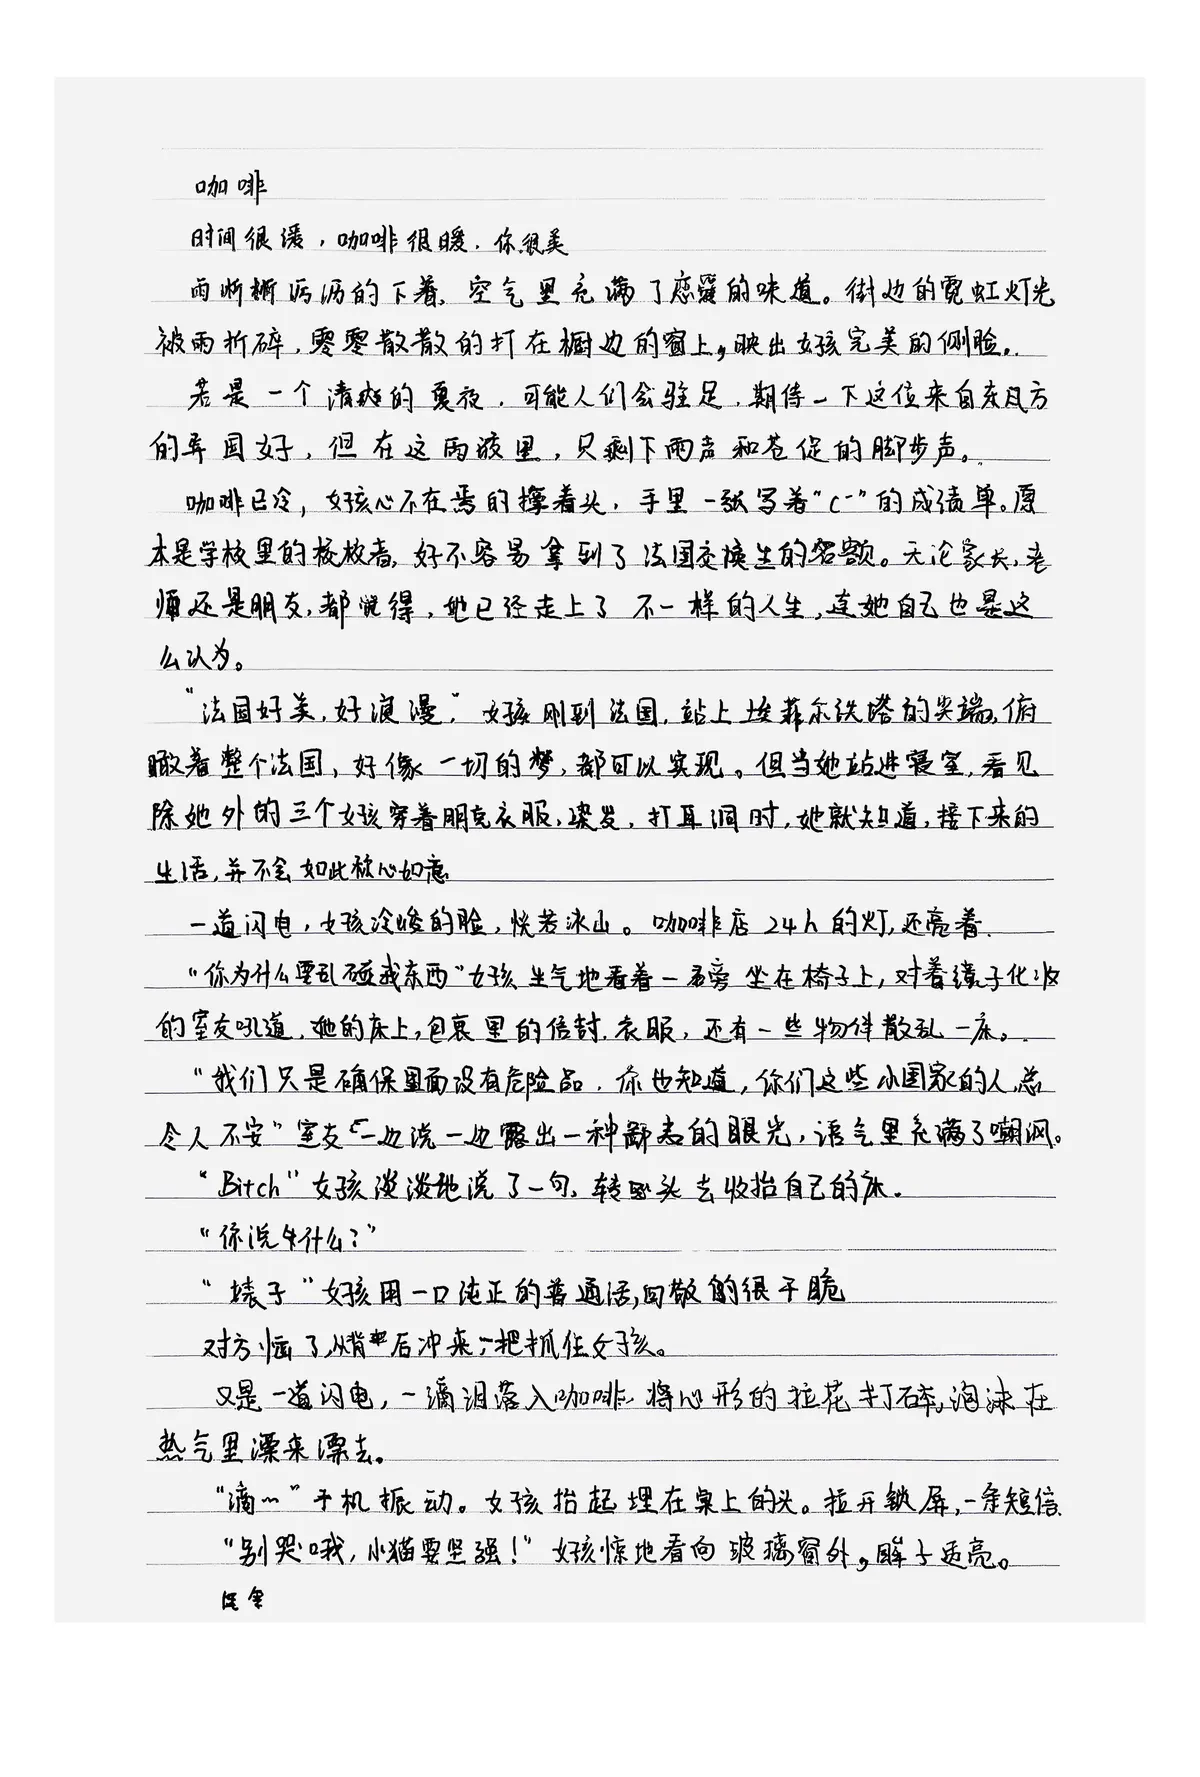 咖啡
时间很暖，咖啡很暖，你很美
雨淅淅沥沥的下着，空气里充满了的味道。街边的霓虹灯光
被雨折碎，零零散散的打在橱边的窗上，映出女孩完美的侧脸。
若是一个清爽的夏夜，可能人们会驻足，期待一下这位来自东方
的异国女孩，但在这雨夜里，只剩下雨声和仓促的脚步声。
咖啡已冷，女孩心不在焉的撑着头，手里一张写着“C-”的成绩单。原
本是学校里的佼佼者，好不容易拿到了法国交换生的名额。无论家长，老
师还是朋友，都觉得，她已经走上了不一样的人生，连她自己也是这
么认为。
“法国好美，好浪漫”女孩刚到法国，站上埃菲尔铁塔的尖端，俯
瞰着整个法国，好像一切的梦，都可以实现。但当她站进寝室，看见
除她外的三个女孩穿着朋克衣服，染发，打耳洞时，她就知道，接下来的
生活，并不会如此称心如意
一道闪电，女孩冷峻的脸，恍若冰山。咖啡店24h的灯，还亮着.
“你为什么要乱碰我东西”女孩生气地看着一旁坐在椅子上，对着镜子化妆
的室友吼道，她的床上，包裹里的信封，衣服，还有一些物件散乱一床。
“我们只是确保里面没有危险品，你也知道，你们这些小国家的人，总
令人不安”室友一边说一边露出一种鄙夷的眼光，语气里充满了嘲讽。
“Bitch”女孩淡淡地说了一句，转头去收拾自己的床.
“你说什么？”
“婊子”女孩用一口纯正的普通话，回敬的很干脆
对方恼了，从背后冲来，一把抓住女孩。
又是一道闪电，一滴泪落入咖啡，将心形的拉花打碎，泡沫在
热气里漂来漂去。
“滴~”手机振动。女孩抬起埋在桌上的头。拉开锁屏，一条短信.
“别哭哦，小猫要坚强！”女孩惊地看向玻璃窗外，眸子透亮。